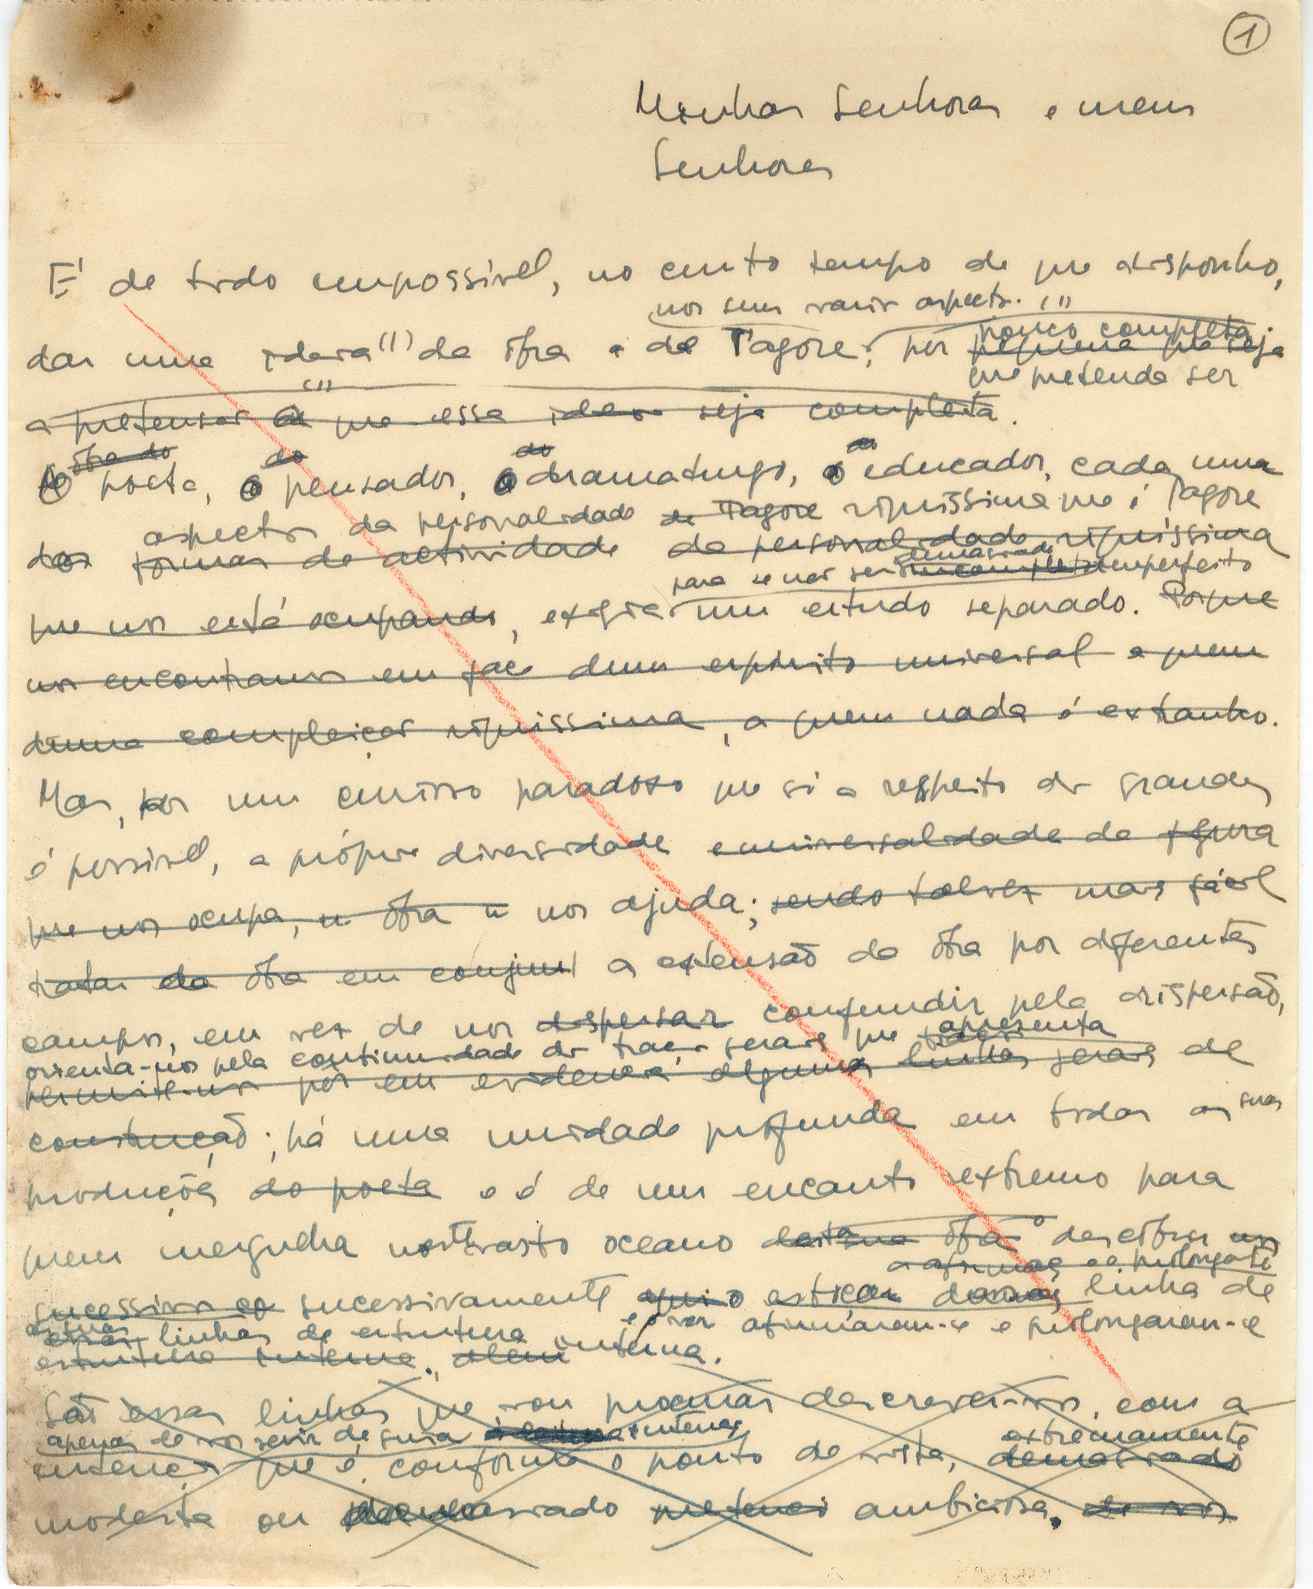 1
Minhas Senhoras e meus
Senhores
É de todo impossível, no curto tempo de que disponho,
nos seus vários aspectos. (1)
dar uma ideia (1) da obra de Tagore, por pequena que seja
pouco completa
que pretenda ser
(1)
a pretensão que essa ideia seja completa.
obra do do do do
O poeta, o pensador, o dramaturgo, o educador, cada uma
aspectos da personalidade de Tagore riquíssima que é Tagore
das formas de actividade da personalidade riquíssima
para se não ser demasiado incompleto imperfeito
que nos está ocupando, exigia um estudo separado. Porque
nos encontramos em face dum espírito universal e quem
duma compleição riquíssima, a quem nada é extranho.
Mas, por um curioso paradoxo que só a respeito dos grandes
é possível, a própria diversidade e universalidade da figura
que nos ocupa, a obra nos ajuda; sendo talvez mais fácil
tratar da obra em conjunto a extensão da obra por diferentes
campos, em vez de nos dispersar confundir pela dispersão,
orienta-nos pela continuidade dos traços gerais que apresenta
permite-nos pôr em evidência algumas linhas gerais de
construção; há uma unidade profunda em todas as suas
produções do poeta e é de um encanto extremo para
quem mergulha neste vasto oceano desta obra descobrir
a afirmar e a prolongar
sucessivos sucessivamente linha de
essas linhas de estrutura e vê-las afirmarem-se e prolongarem-se
estrutura interna, além interna.
São essas linhas que vou procurar descrever-vos, com a
apenas de vos servir de guia extremamente
intenção que é, conforme o ponto de vista, demasiado
modesta ou demasiado ambiciosa. de vos